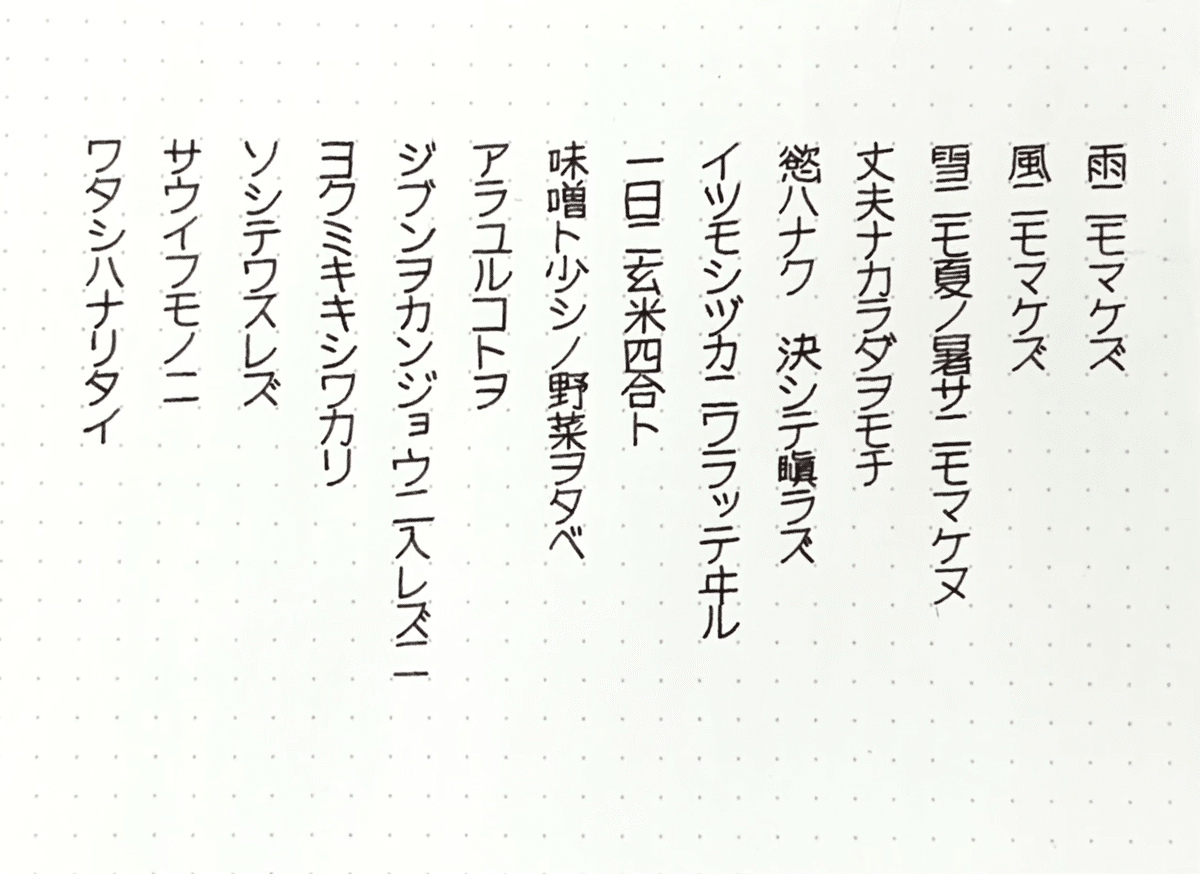 雨ニモマケズ
風ニモマケズ
雪ニモ夏ノ暑サニモマケヌ
丈夫ナカラダヲモチ
慾ハナク　決シテ瞋ラズ
イツモシヅカニワラッテヰル
一日ニ玄米四合ト
味噌ト少シノ野菜ヲタベ
アラユルコトヲ
ジブンヲカンジョウニ入レズニ
ヨクミキキシワカリ
ソシテワスレズ
サウイフモノニ
ワタシハナリタイ